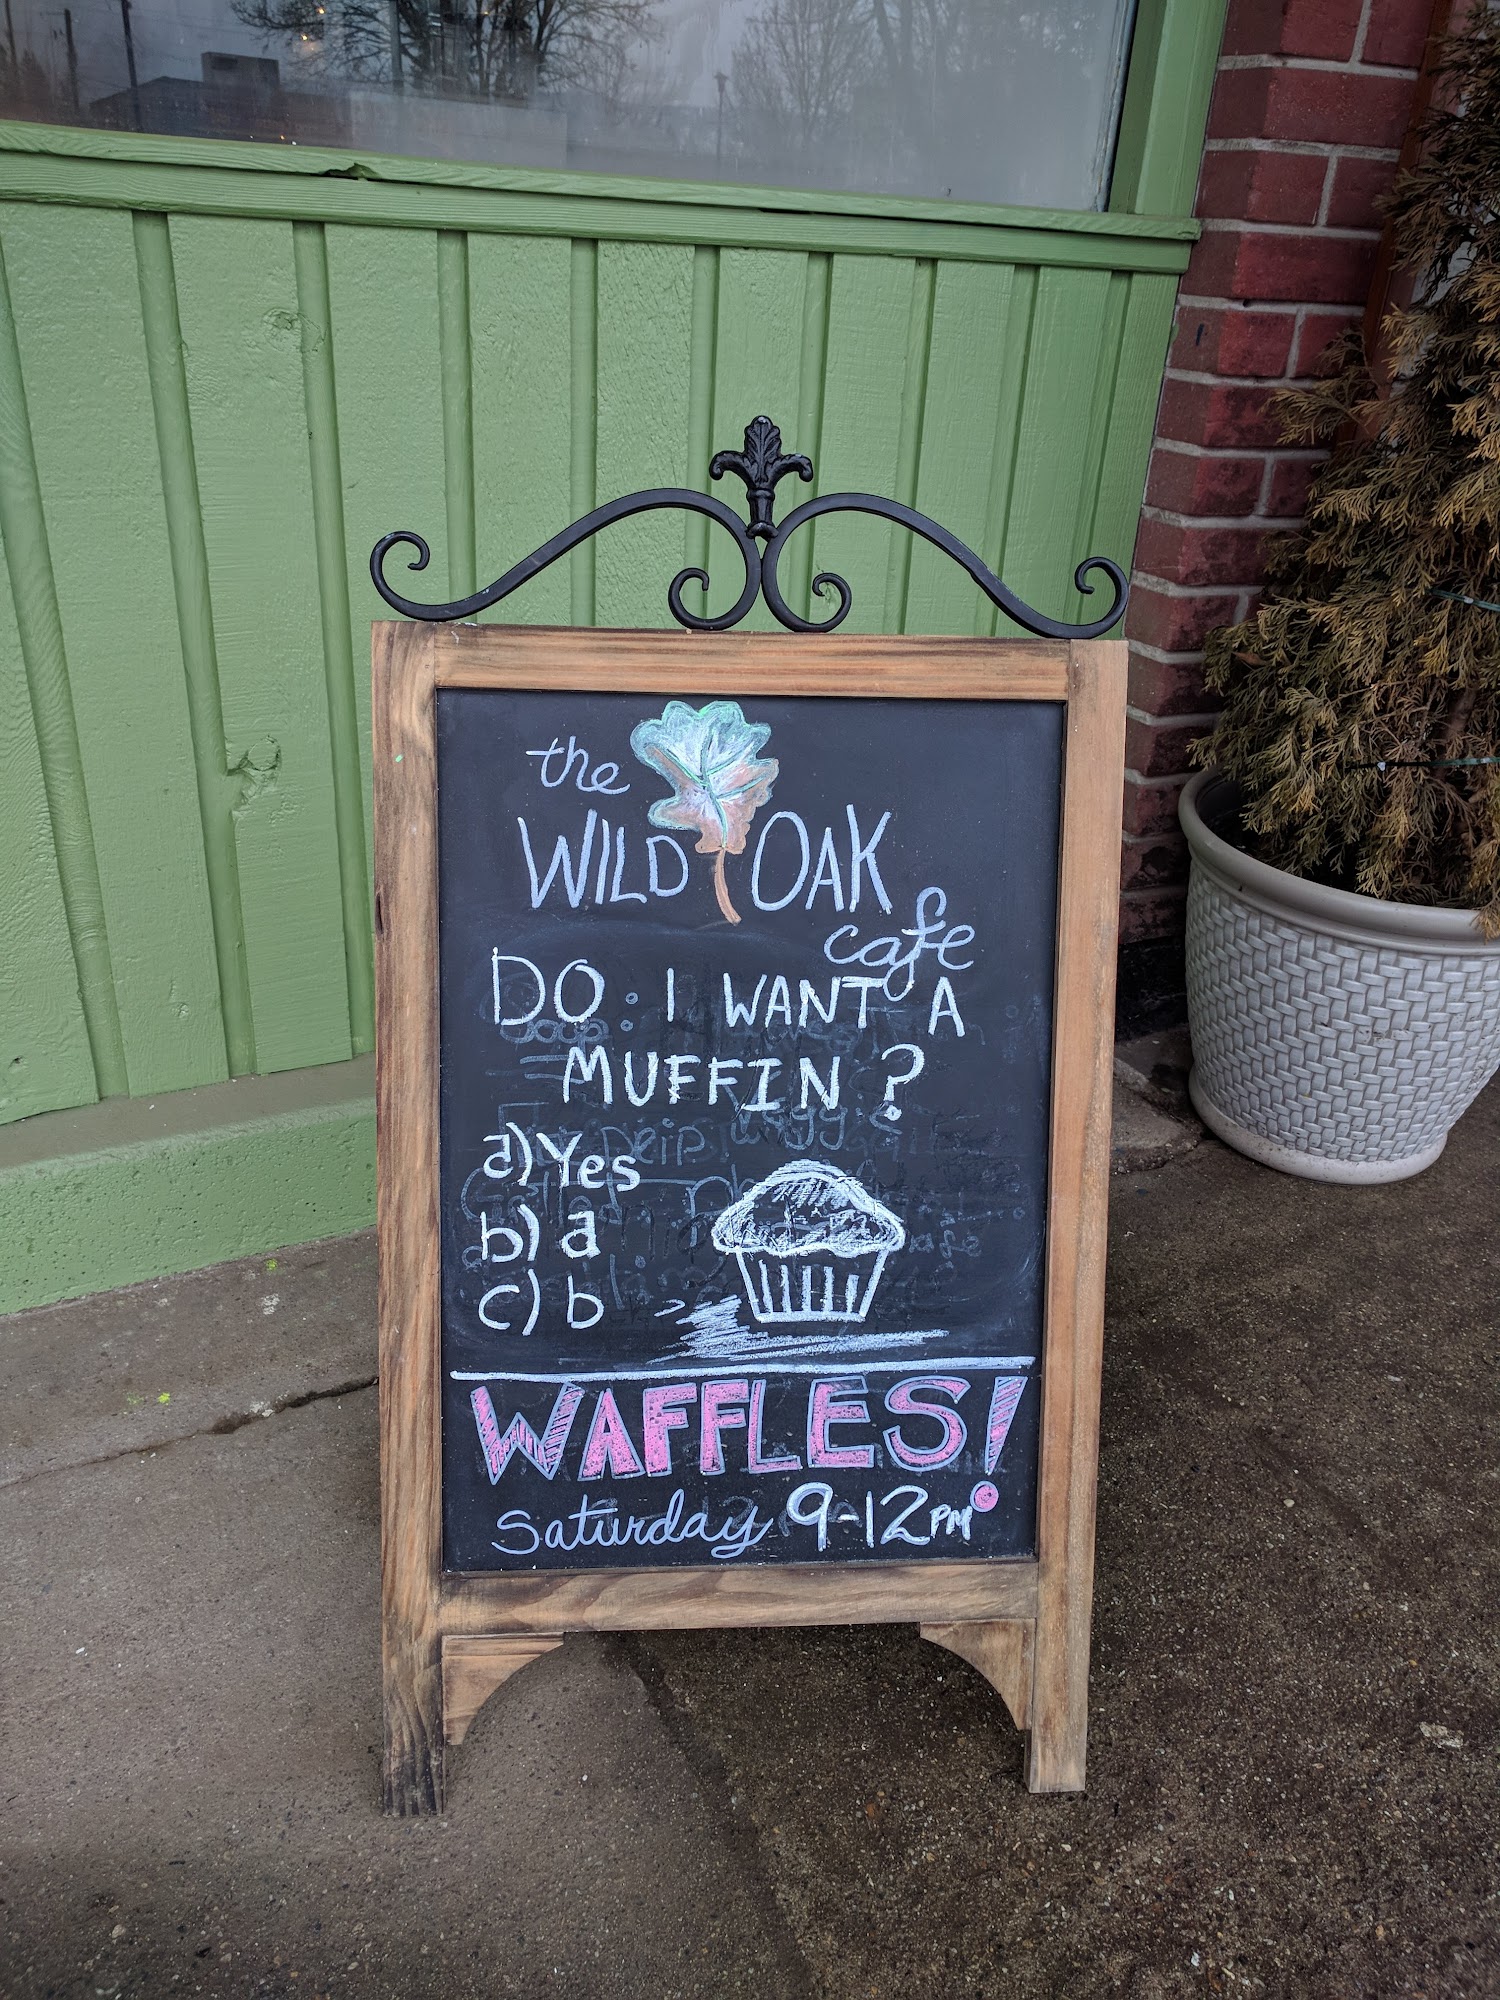 the
WILD OAK
cafe
DO I WANT A
MUFFIN?
a) Yes
b) a
c) b
WAFFLES!
Saturday 9-12PM